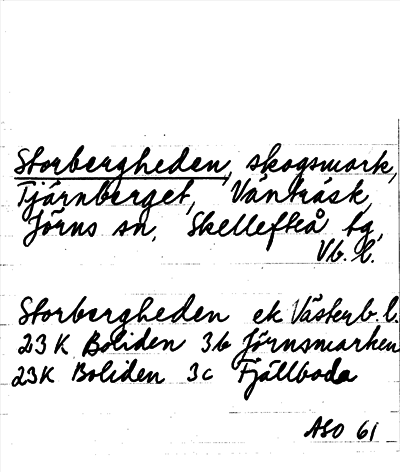 Storbergheden, skogsmark,
Tjärnberget, Vänträsk,
Jörns sn, Skellefteå tg,
Vb. l.
Storbergheden ek Västerb. l.
23 K Boliden 3b Jörnsmarken
23K Boliden 3c Fjällboda
ASO 61